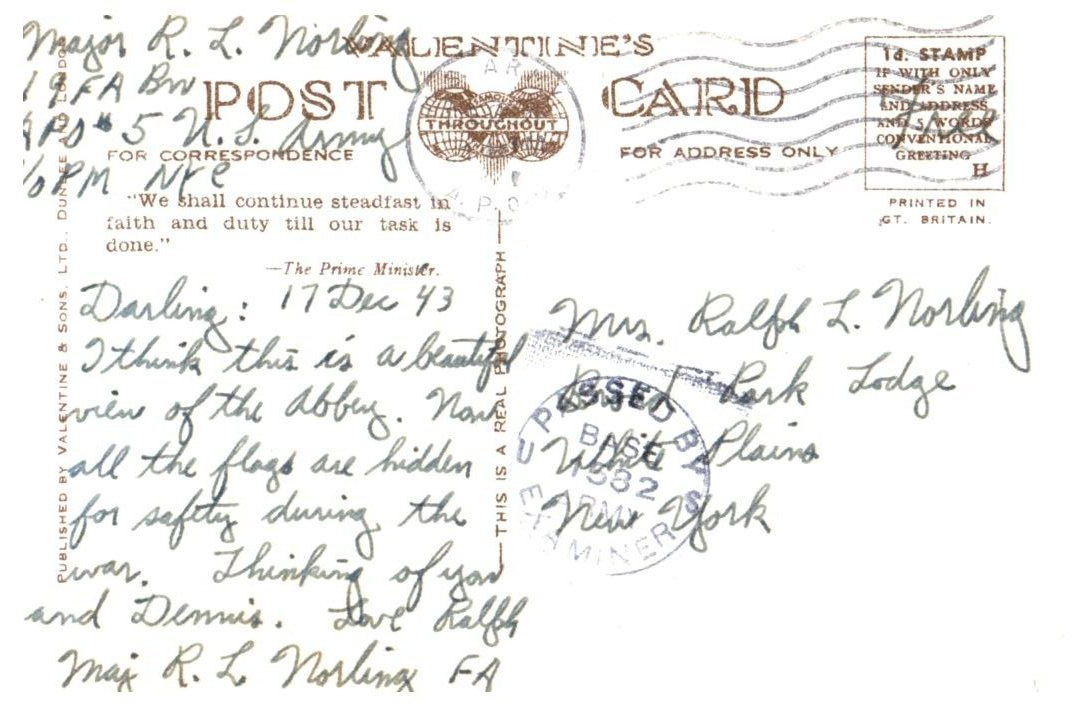 Major R. L. Norling
19 FA Bn
APO # 5 U.S. Army
c/o PM NYC
VALENTINE'S
POST CARD
THROUGHOUT
FOR CORRESPONDENCE
FOR ADDRESS ONLY
1d. STAMP
IF WITH ONLY
SENDER'S NAME
AND ADDRESS
AND 5 WORDS
CONVENTIONAL
GREETING
H
PRINTED IN
GT. BRITAIN.
"We shall continue steadfast in
faith and duty till our task is
done."
—The Prime Minister.
Darling: 17 Dec 43
I think this is a beautiful
view of the Abbey. Now
all the flags are hidden
for safety during the
war. Thinking of you
and Dennis. Love Ralph
Maj R. L. Norling FA
Mrs. Ralph L. Norling
Park Lodge
White Plains
New York
PASSED BY
BASE
1332
ARMY
EXAMINER
U S
A.P.O.
PUBLISHED BY VALENTINE & SONS, LTD., DUNDEE LONDON
THIS IS A REAL PHOTOGRAPH